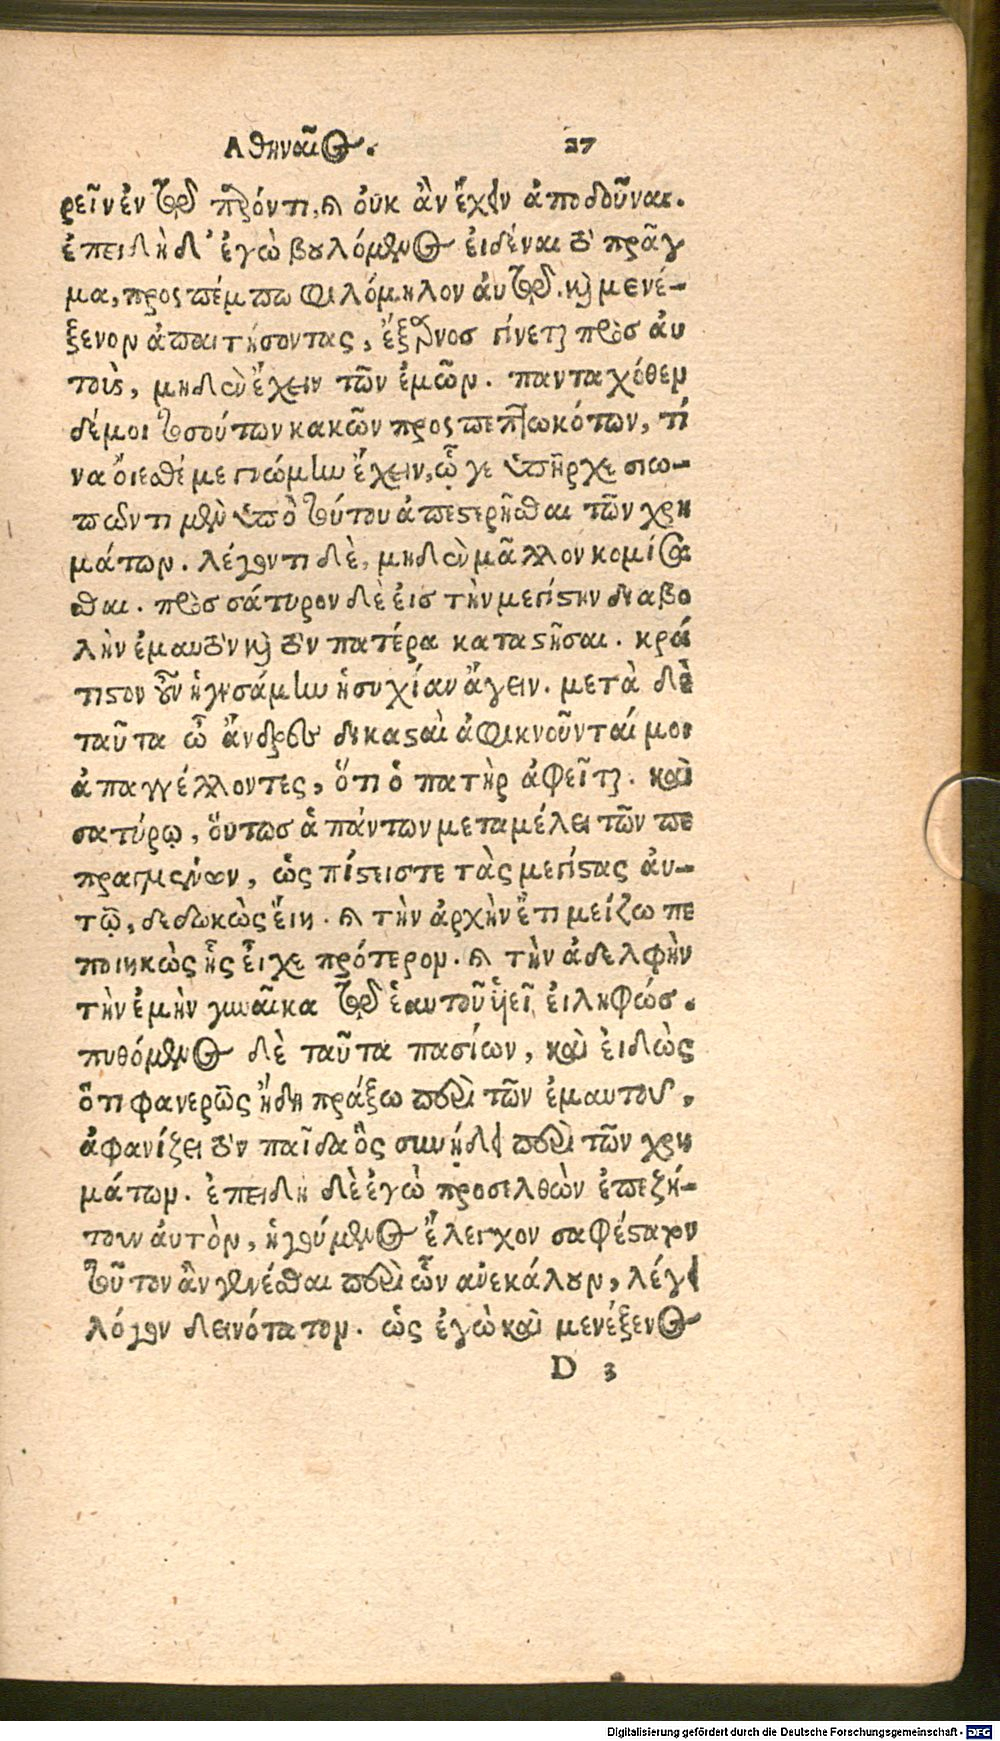 Αθηναῖος. 27
ρεῖν ἐν τῷ παρόντι, καὶ οὐκ ἂν ἔχειν ἀποδοῦναι.
ἐπειδὴ δ' ἐγὼ βουλόμενος εἰδέναι τὸ πρᾶγ
μα, προςπέμπω Φιλόμηλον ἀυτῷ. καὶ μενέ-
ξενον ἀπαιτήσοντας, ἔξαρνοσ γίνεται πρὸσ ἀυ
τοὺς, μηδὲν ἔχειν τῶν ἐμῶν. πανταχόθεν
δέμοι τοσούτων κακῶν προςπεπτωκότων, τί
να ὄιεσθέ με γνώμην ἔχειν, ᾧ γε ὑπῆρχε σιω-
πῶντι μὲν ὑπὸ τούτου ἀπεστερῆσθαι τῶν χρη
μάτων. λέγοντι δὲ, μηδὲν μᾶλλον κομίσα
σθαι. πρὸσ σάτυρον δὲ ἐισ τὴν μεγίστην διαβο
λὴν ἐμαυτὸν καὶ τὸν πατέρα καταστῆσαι. κρά
τιστον οὖν ἡγησάμην ἡσυχίαν ἄγειν. μετὰ δὲ
ταῦτα ὦ ἄνδρες δικασταὶ ἀφικνοῦνταί μοι
ἀπαγγέλλοντες, ὅτι ὁ πατὴρ ἀφεῖται. καὶ
σατύρῳ, ὅυτωσ ἁπάντων μεταμέλει τῶν πε
πραγμένων, ὡς πίστειστε τὰς μεγίστας ἀυ-
τῷ, δεδωκὼς ἔιη. καὶ τὴν ἀρχὴν ἔτι μείζω πε
ποιηκὼς ἧς εἶχε πρότερον. καὶ τὴν ἀδελφὴν
τὴν ἐμὴν γυναῖκα τῷ ἑαυτοῦ ὑιεῖ ἐιληφώσ.
πυθόμενος δὲ ταῦτα πασίων, καὶ ἐιδὼς
ὅτι φανερῶς ἤδη πράξω περὶ τῶν ἐμαυτοῦ,
ἀφανίζει τὸν παῖδα ὃς συνῄδει περὶ τῶν χρη
μάτων. ἐπειδὴ δὲ ἐγὼ προσελθὼν ἐπεζή-
τουν ἀυτὸν, ἡγούμενος ἔλεγχον σαφέστατον
τοῦτον ἂν γενέσθαι περὶ ὧν ἀνεκάλουν, λέγει
λόγον δεινότατον. ὡς ἐγὼ καὶ μενέξενος
D 3
Digitalisierung gefördert durch die Deutsche Forschungsgemeinschaft - DFG